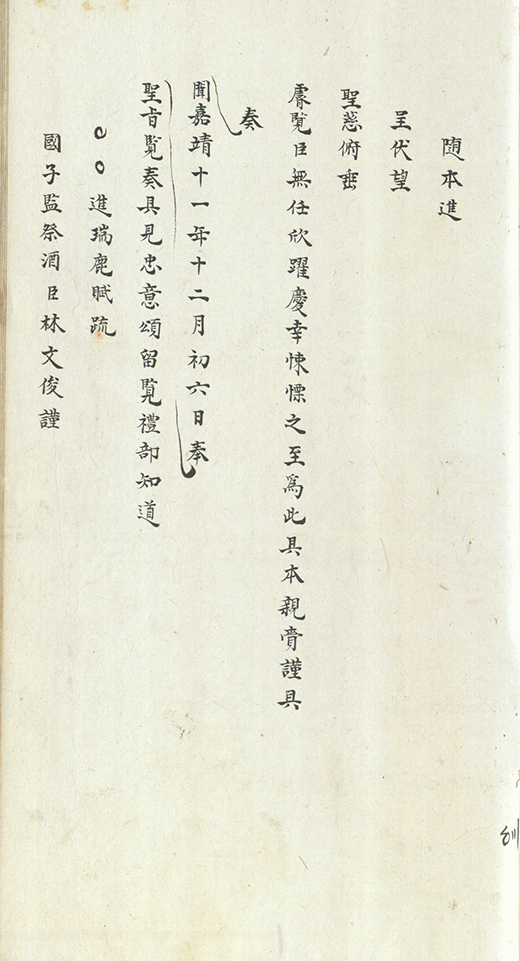 随本進
呈伏望
聖慈俯垂
睿覽臣無任欣躍慶幸悚慄之至爲此具本親賫謹具
奏
聞嘉靖十一年十二月初六日奉
聖旨覽奏具見忠意頌留覽禮部知道
進瑞鹿賦疏
國子監祭酒臣林文俊謹